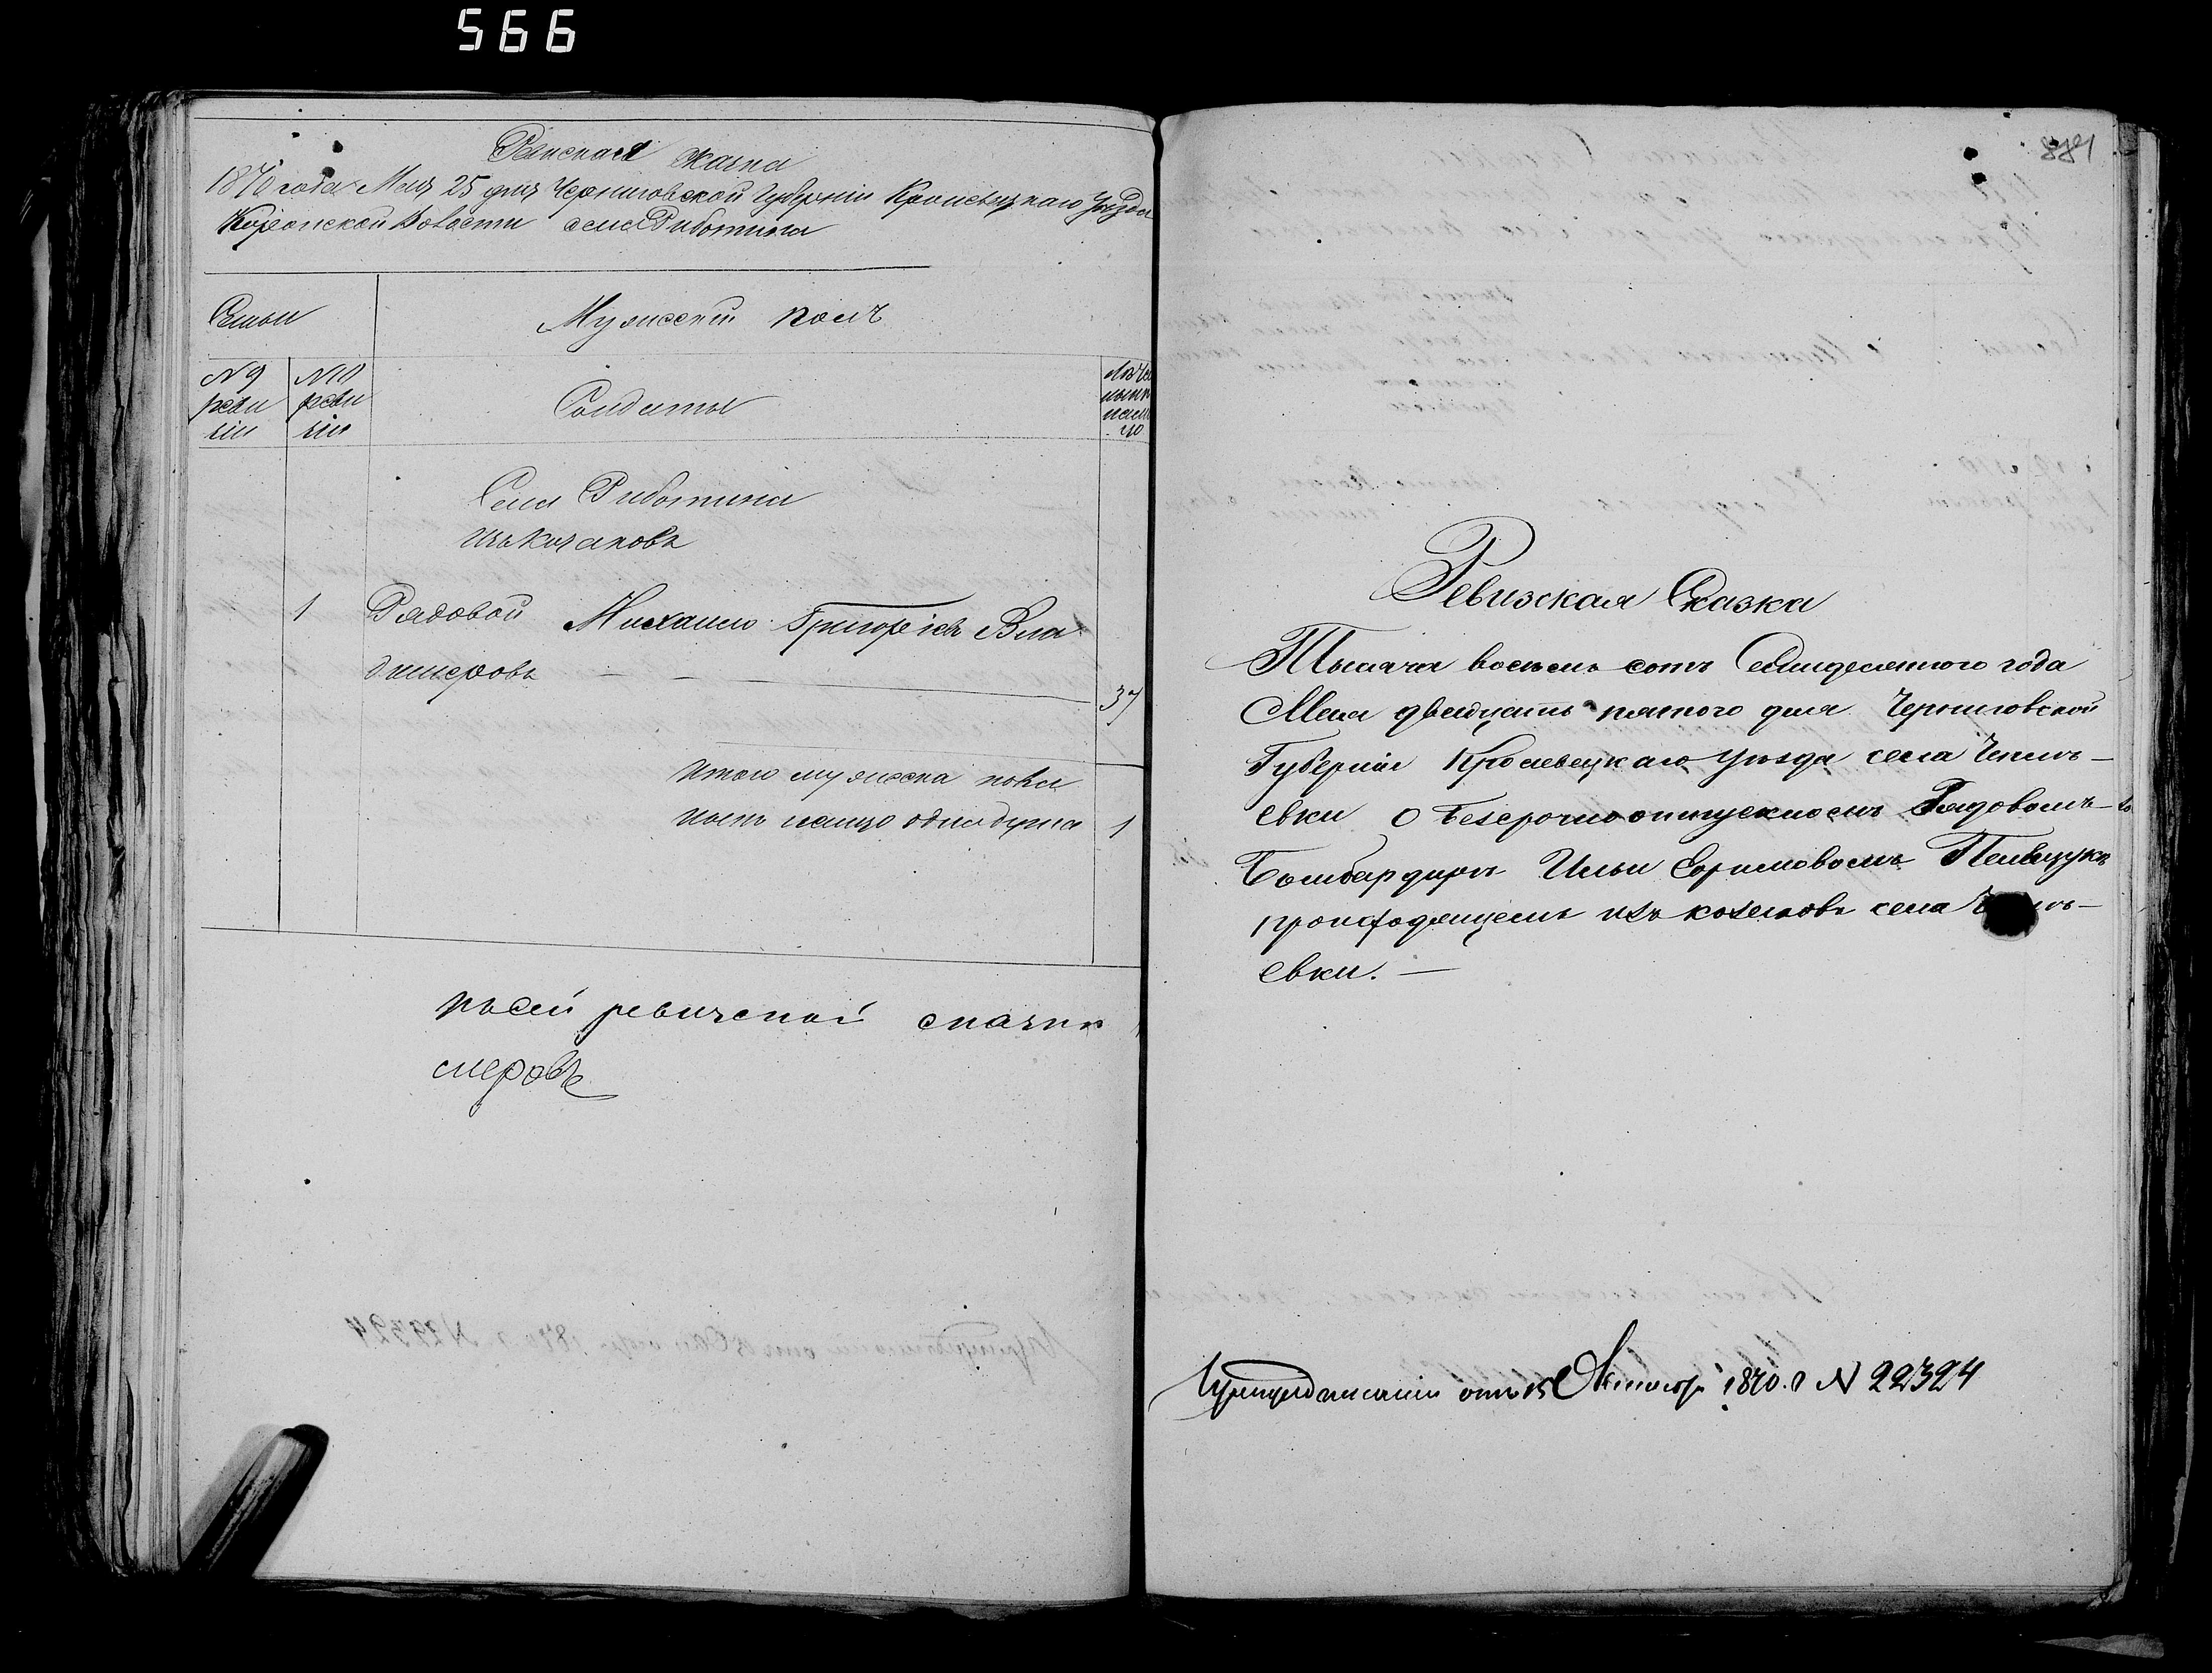 566
Ревиская сказка
1870 года Мая 25 дня Черниговской Губерніи Кролевецкаго Уезда
Коропской Волости села Риботина
Семьи
Мужескій полъ
№ 9 ревизіи
№ 10 ревизіи
Солдаты
Села Риботина
Изъ Козаковъ
1 Рядовой Михаило Григорьевъ Вла
димеровъ 37
Итого мужеска пола
налицо одна душа 1
Къ сей ревизской сказки
меровъ
Ревизская Сказка
Тысяча восемь сотъ Семидесятого года
Мая двадцать пятого дня Черниговской
Губерніи Кролевецкаго Уезда села
евки О безсрочноотпускномъ Рядовомъ
Бомбардире Ильи
происходящемъ изъ козаковъ села
евки. —
отъ 15 Октября 1870 г № 22324